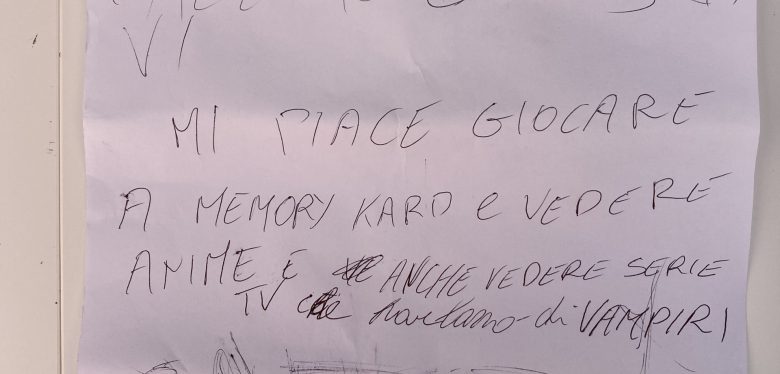 VI
MI PIACE GIOCARE
A MEMORY KARD e VEDERE
ANIME E ANCHE VEDERE SERIE
TV che parlano di VAMPIRI